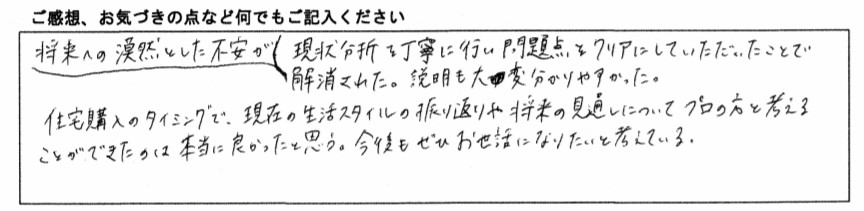 ご感想、お気づきの点など何でもご記入ください
将来への漠然とした不安が(現状分析を丁寧に行い問題点をクリアにしていただいたことで
解消された。説明も大変分かりやすかった。
住宅購入のタイミングで、現在の生活スタイルの振り返りや将来の見通しについてプロの方と考える
ことができたのは本当に良かったと思う。今後もぜひお世話になりたいと考えている。